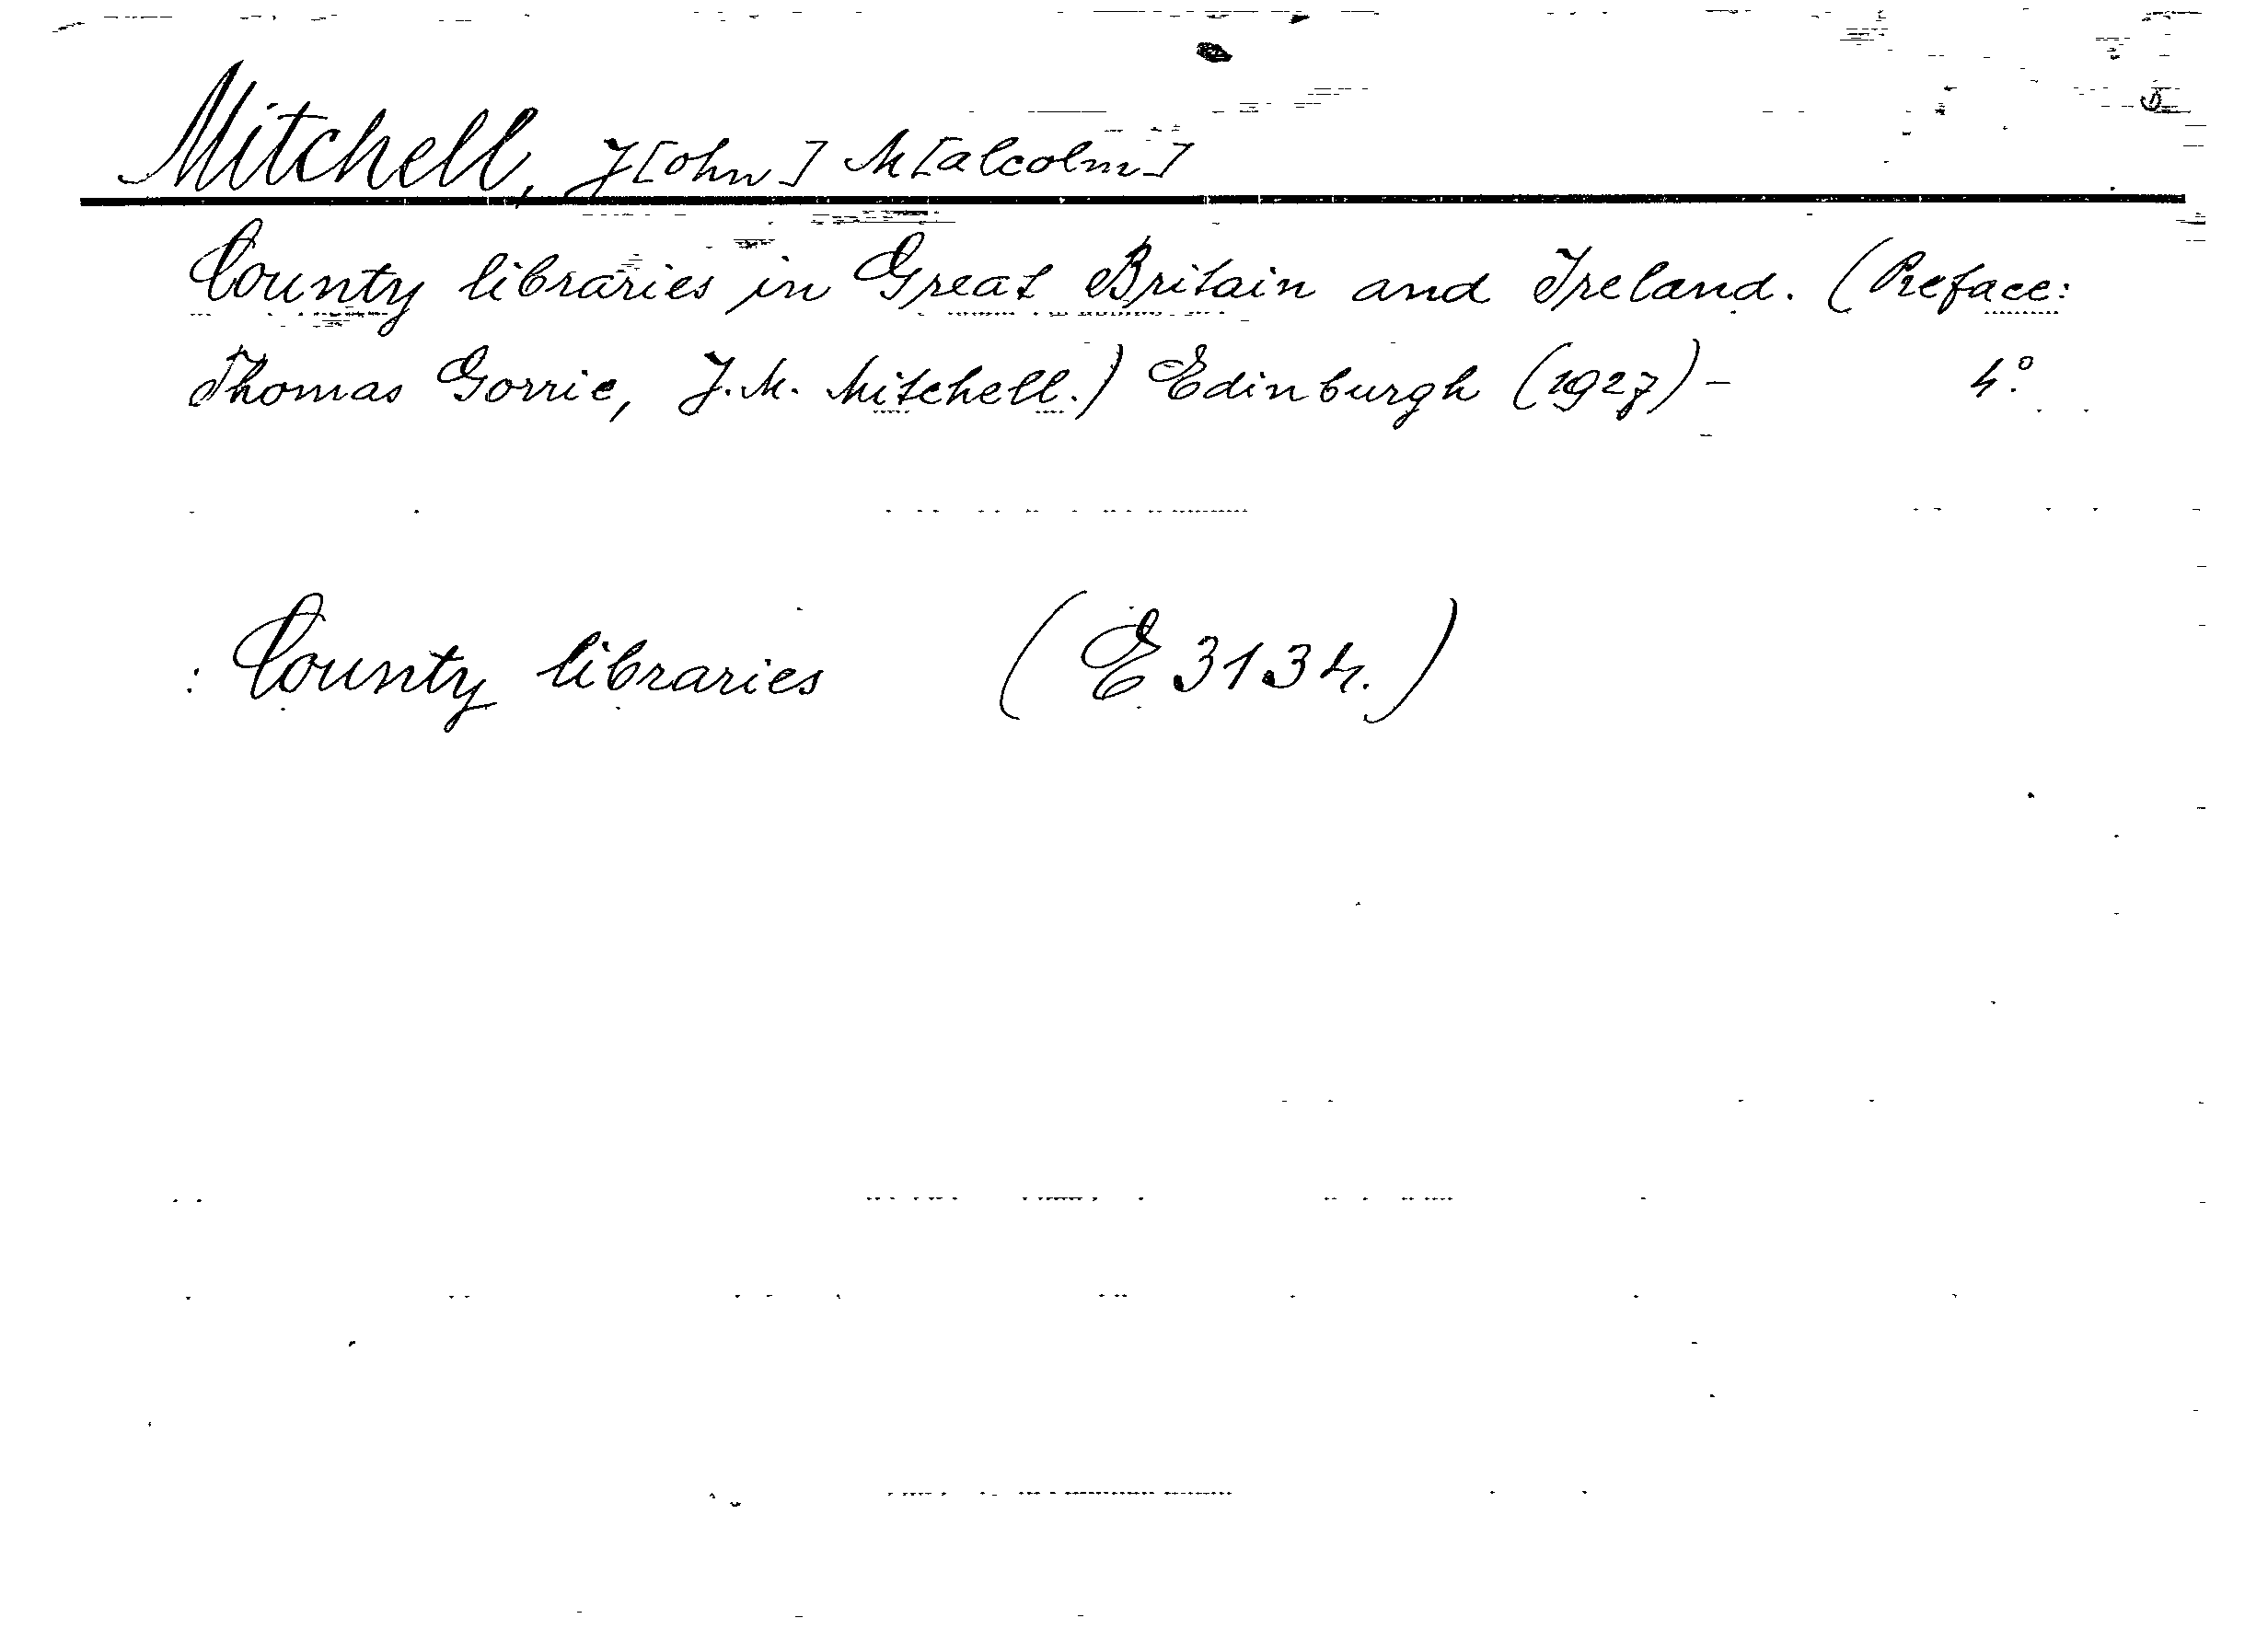 Mitchell, J[ohn] M[alcolm]
County libraries in Great Britain and Ireland. (Preface:
Thomas Gorrie, J. M. Mitchell.) Edinburgh (1927) - 4°.
: County libraries (E 3134.)